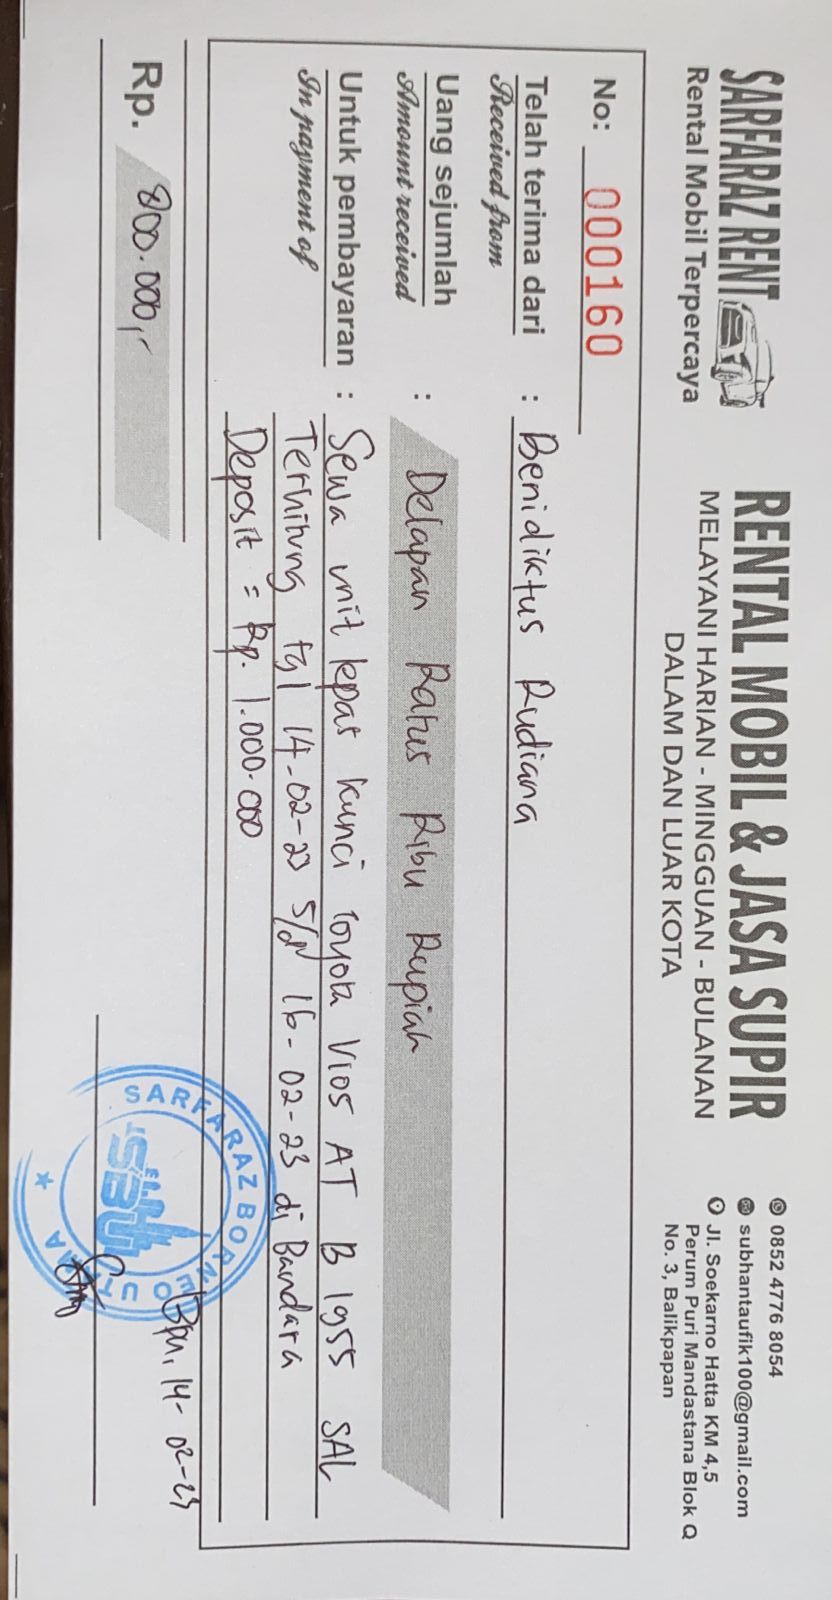 SARFARAZ RENT
Rental Mobil Terpercaya
RENTAL MOBIL & JASA SUPIR
MELAYANI HARIAN - MINGGUAN - BULANAN
DALAM DAN LUAR KOTA
0852 4776 8054
subhantaufik100@gmail.com
Jl. Soekarno Hatta KM 4,5
Perum Puri Mandastana Blok Q
No. 3, Balikpapan
No: 000160
Telah terima dari : Benidiktus Rudiana
Received from
Uang sejumlah : Delapan Ratus Ribu Rupiah
Amount received
Untuk pembayaran : Sewa unit lepas kunci Toyota Vios AT B 1955 SAL
In payment of
Terhitung tgl 14-02-23 s/d 16-02-23 di Bandara
Deposit = Rp. 1.000.000
Rp. 800.000,-
Bpn, 14-02-23
SARFARAZ BORNEO UTAMA
SBU